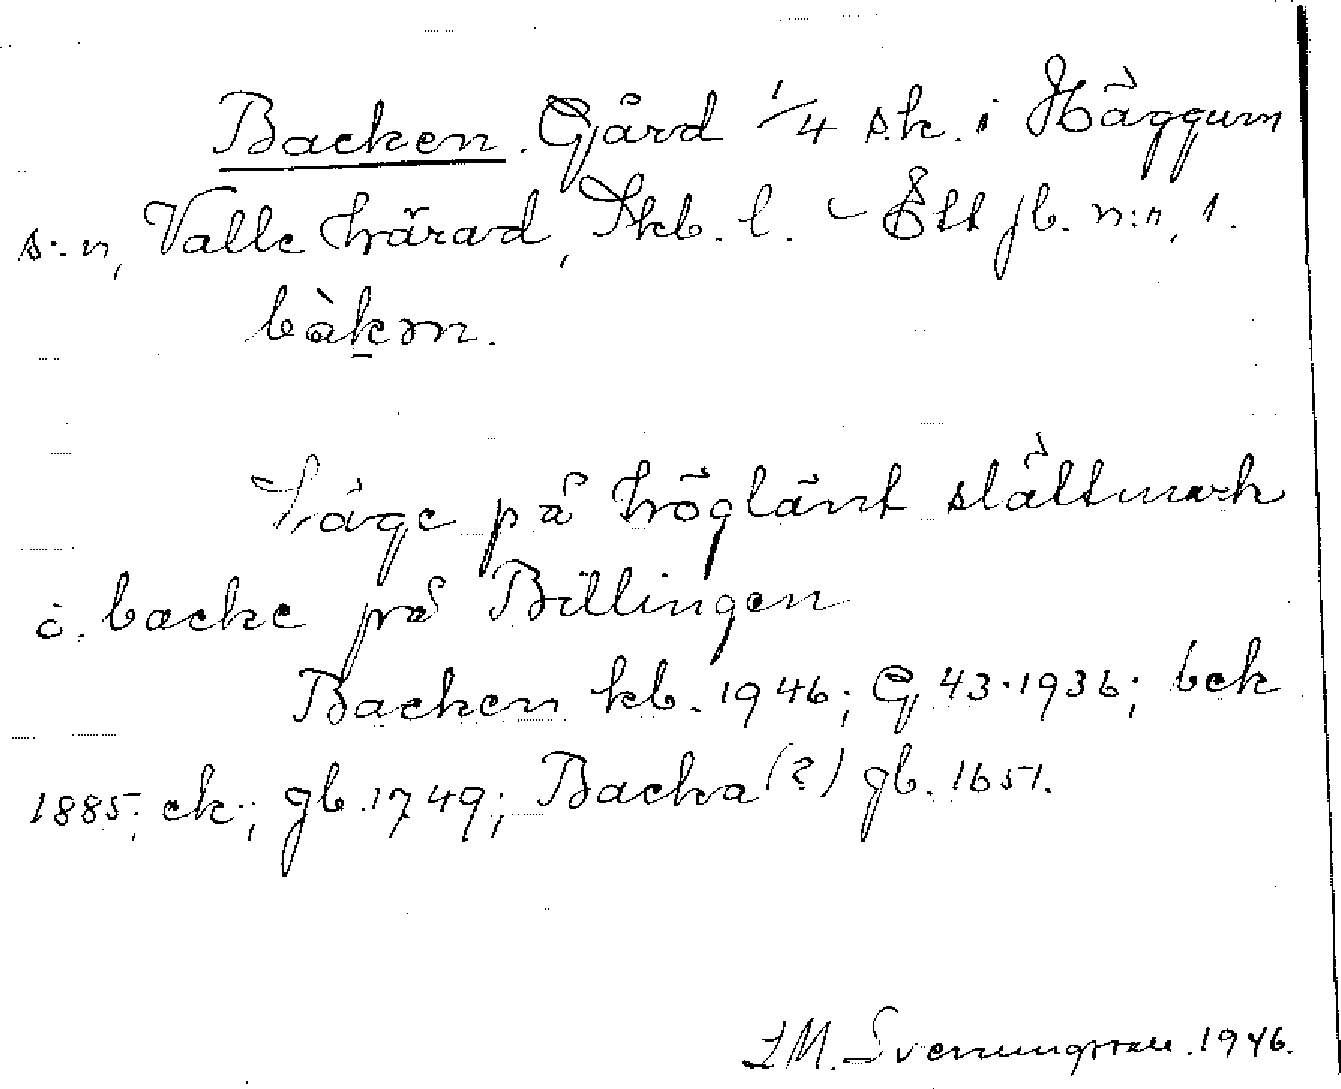 Backen. Gård 1/4 sk. i Häggum
s:n, Valle härad, Skb. l. – Ett jb. n:r, 1.
bàkɘn.
Läge på höglänt slättmark
o. backe på Billingen
Backen kb. 1946; G, 43·1936; bek
1885; ek; gb. 1749; Backa (?) gb. 1651.
I M. Svenungsson. 1946.